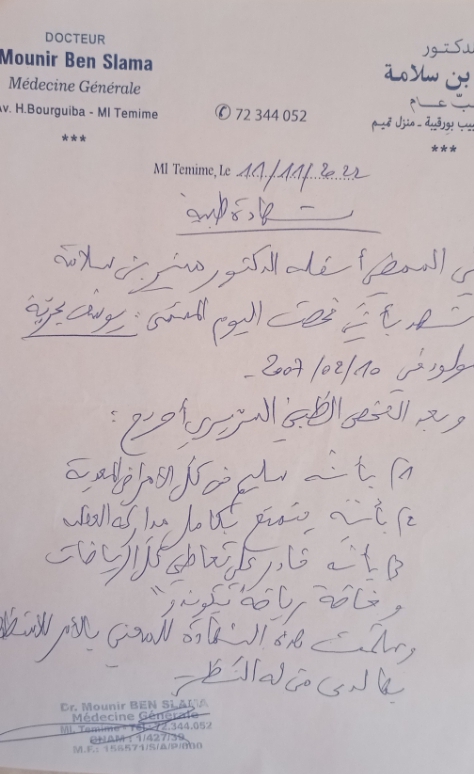 DOCTEUR
Mounir Ben Slama
Médecine Générale
Av. H.Bourguiba - Ml Temime
***
✆ 72 344 052
دكتور
بن سلامة
بّ عــام
بيب بورقيبة ـ منزل تميم
***
Ml Temime, Le 11/11/2022
شهادة طبية
الممضي أسفله الدكتور منير بن سلامة
شهد بأني فحصت اليوم المسمى: يوسف
مولود في 2007/02/10 -
وبعد الفحص الطبي السريري أصرح :
1) بأنه سليم من كل الأمراض المعدية
2) بأنه يتمتع بكامل مداركه العقلية
3) بأنه قادر على تعاطي كل الرياضات
وخاصة رياضة "تيكوندو"
وسلمت هذه الشهادة للمعني بالأمر
بها لدى من له النظر
Dr. Mounir BEN SLAMA
Médecine Générale
Ml. Temime - Tél: 72.344.052
CNAM : 1/427/39